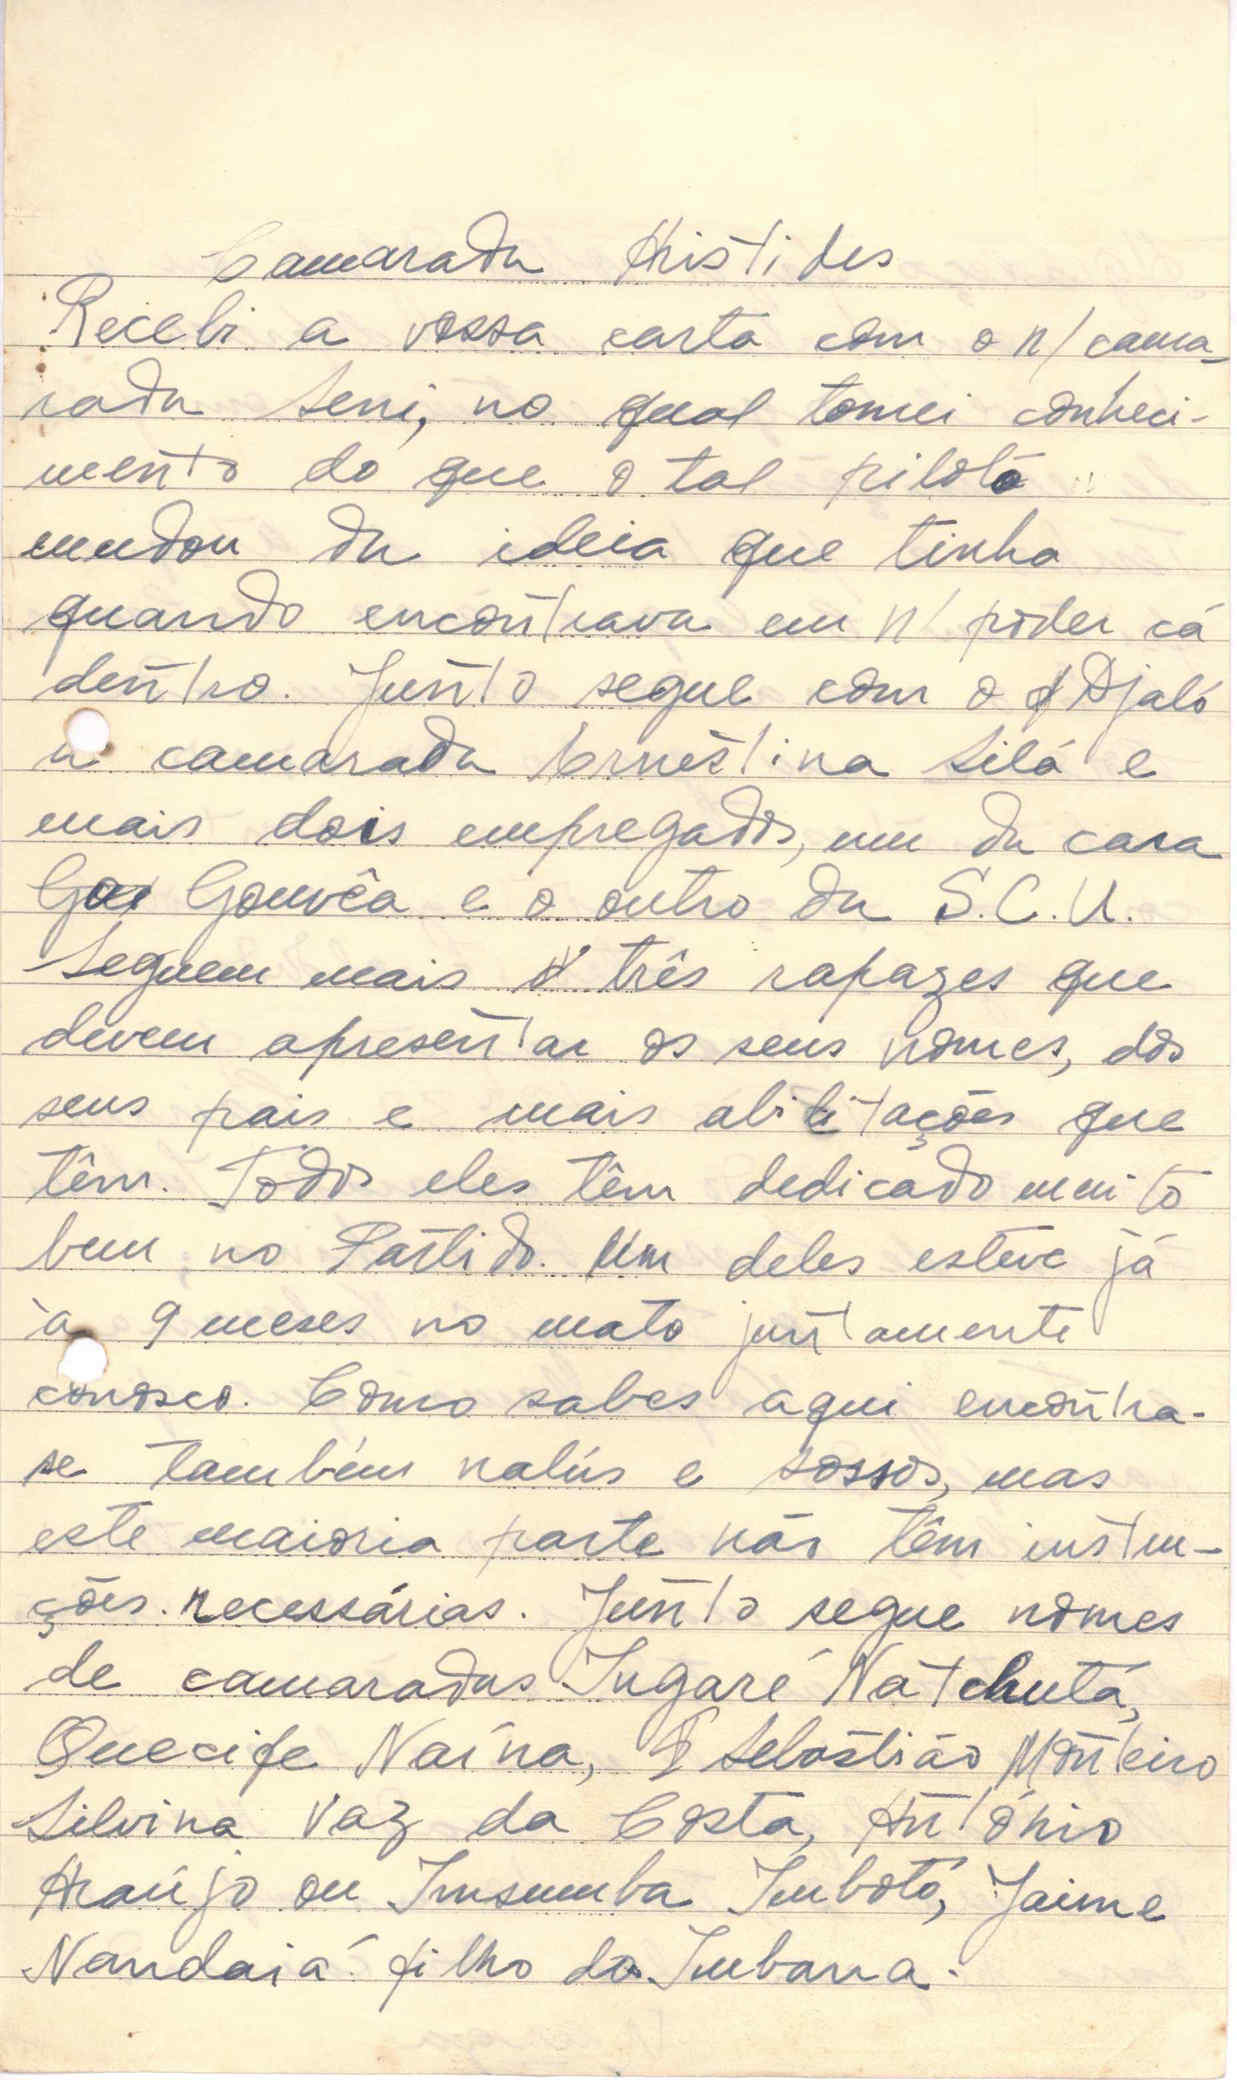 Camarada Aristides
Recebi a vossa carta com o n/ cama-
rada Seni, no qual tomei conheci-
mento do que o tal piloto
mudou da ideia que tinha
quando encontrava em n/ poder cá
dentro. Junto segue com o Djaló
a camarada Ernestina Silá e
mais dois empregados, um da casa
Gouvêa e o outro da S.C.U.
Seguem mais três rapazes que
devem apresentar os seus nomes, dos
seus pais e mais abilitações que
têm. Todos eles têm dedicado muito
bem no Partido. Um deles esteve já
à 9 meses no mato juntamente
conosco. Como sabes aqui encontra-
se também nalús e sossos, mas
este maioria parte não têm instru-
ções necessárias. Junto segue nomes
de camaradas Ingaré Natchutá,
Quecife Naína, Sebastião Monteiro
Silvina Vaz da Costa, António
Araújo ou Insumba Imbotó, Jaime
Nandaiá filho de Imbana.